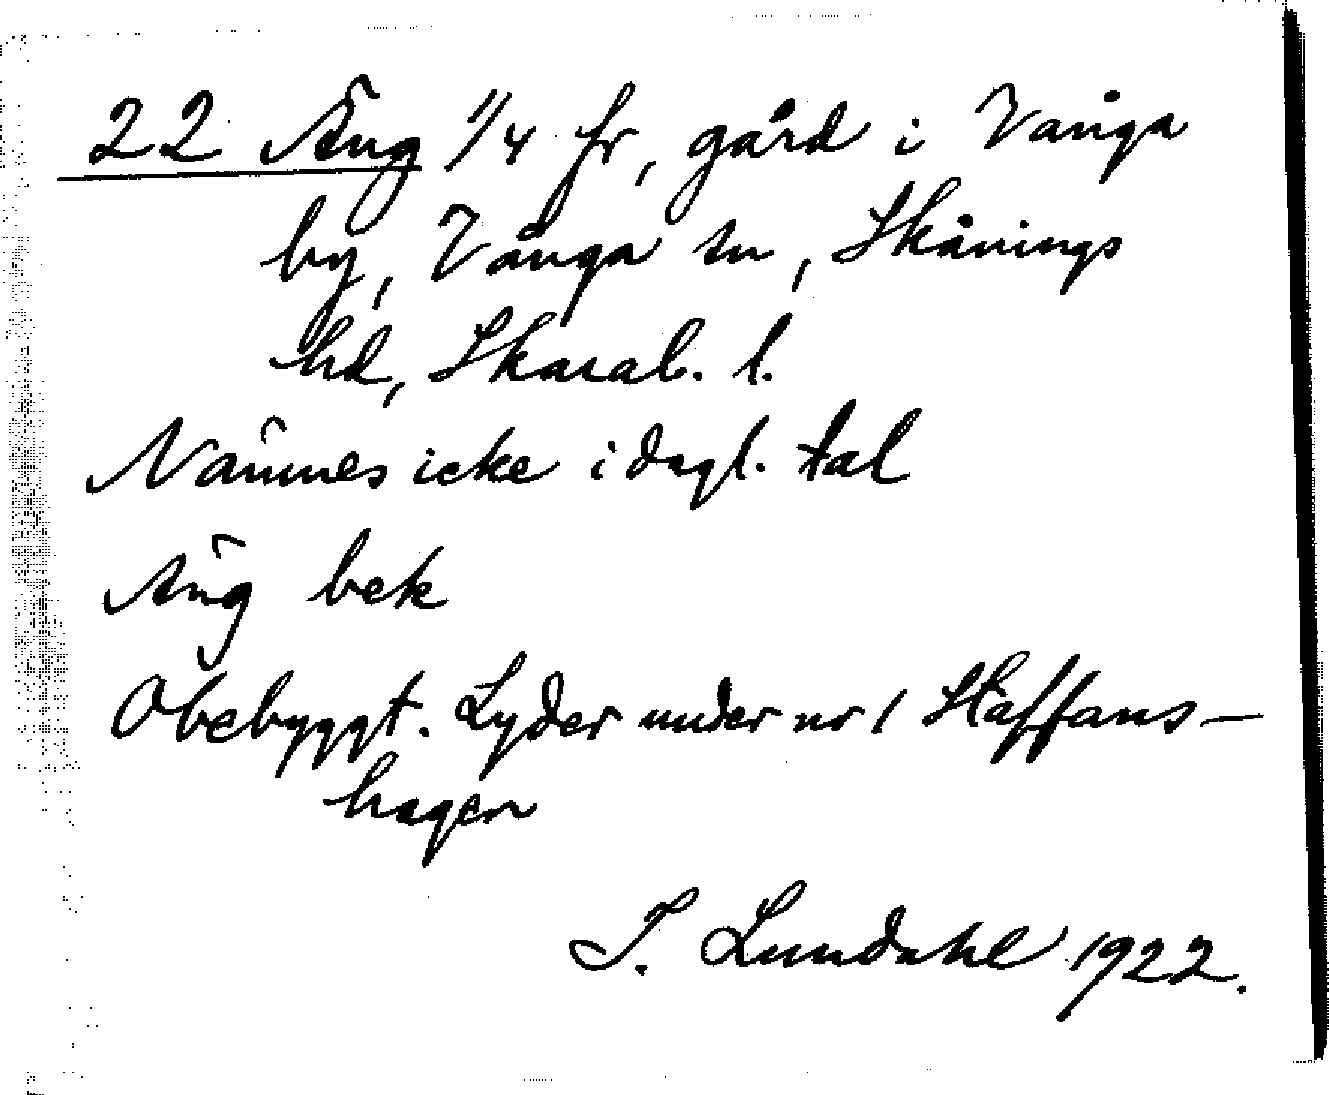 22 Äng 1/4 fr, gård i Vånga
by, Vånga sn, Skånings
hd, Skarab. l.
Nämnes icke i dagl. tal
Äng bek
Obebyggt. Lyder under nr 1 Staffans-
hagen
I. Lundahl 1922.